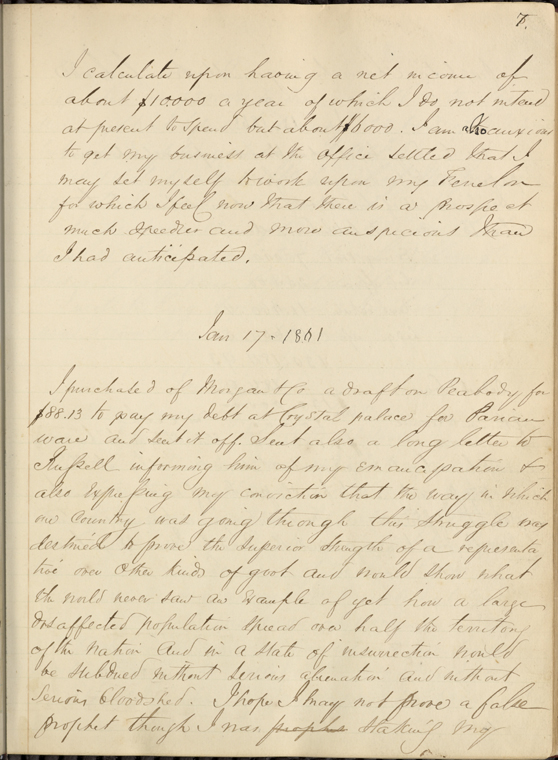 7.
I calculate upon having a net income of
about $10000 a year of which I do not intend
at present to spend but about $6000. I am also anxious
to get my business at the office settled that I
may set myself to work upon my Fenelon
for which I feel now that there is a prospect
much speedier and more auspicious than
I had anticipated.
Jan 17 - 1861
I purchased of Morgan & Co a draft on Peabody for
$88.13 to pay my debt at Crystal palace for Parian
ware and sent it off. Sent also a long letter to
Russell informing him of my emancipation &
also expressing my conviction that the way in which
our Country was going through this struggle was
destined to prove the superior strength of a representa
tive over other kinds of govt and would show what
the world never saw an example of yet how a large
disaffected population spread over half the territory
of the nation and in a state of insurrection would
be subdued without serious alienation and without
serious bloodshed. I hope I may not prove a false
prophet though I was proph staking my